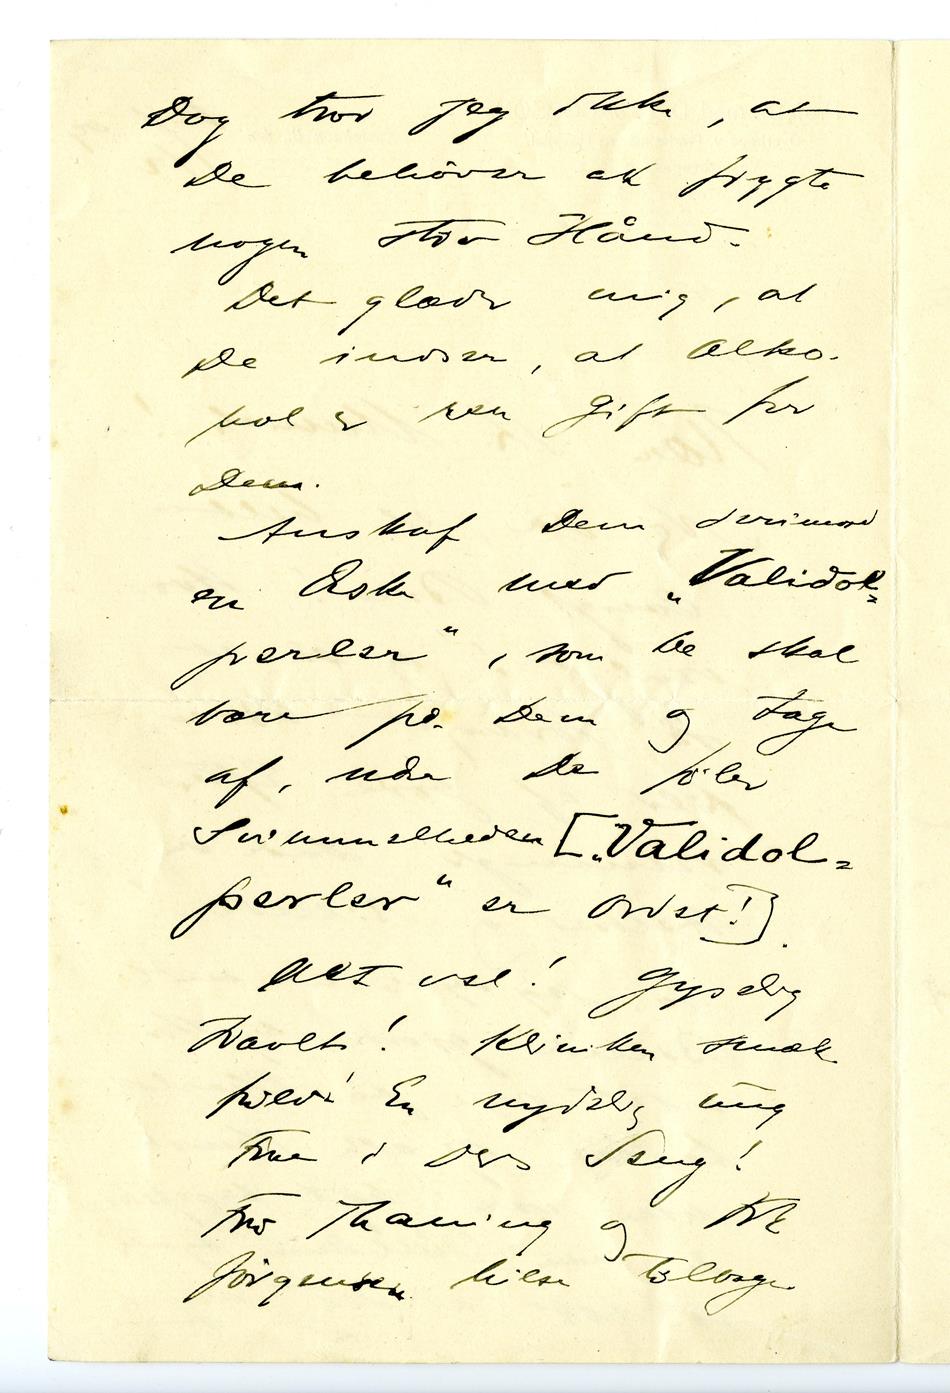 Dog tror jeg ikke, at
De behøver at frygte
nogen stor Hånd.
Det glæder mig, at
De indser, at Alko-
hol er ren Gift for
Dem.
Anskaf Dem
en Æske med „Validol=
perler“, som De skal
bære på Dem og tage
af, når De føler
Svimmelheden [„Validol=
perler“ er Ordet!].
Alt vel! Gyselig
travlt! Kliniken smæk
fuld! En nydelig ung
Frue i Deres Seng!
Frk Thaning og Frk
Jørgensen hilser Tilbage